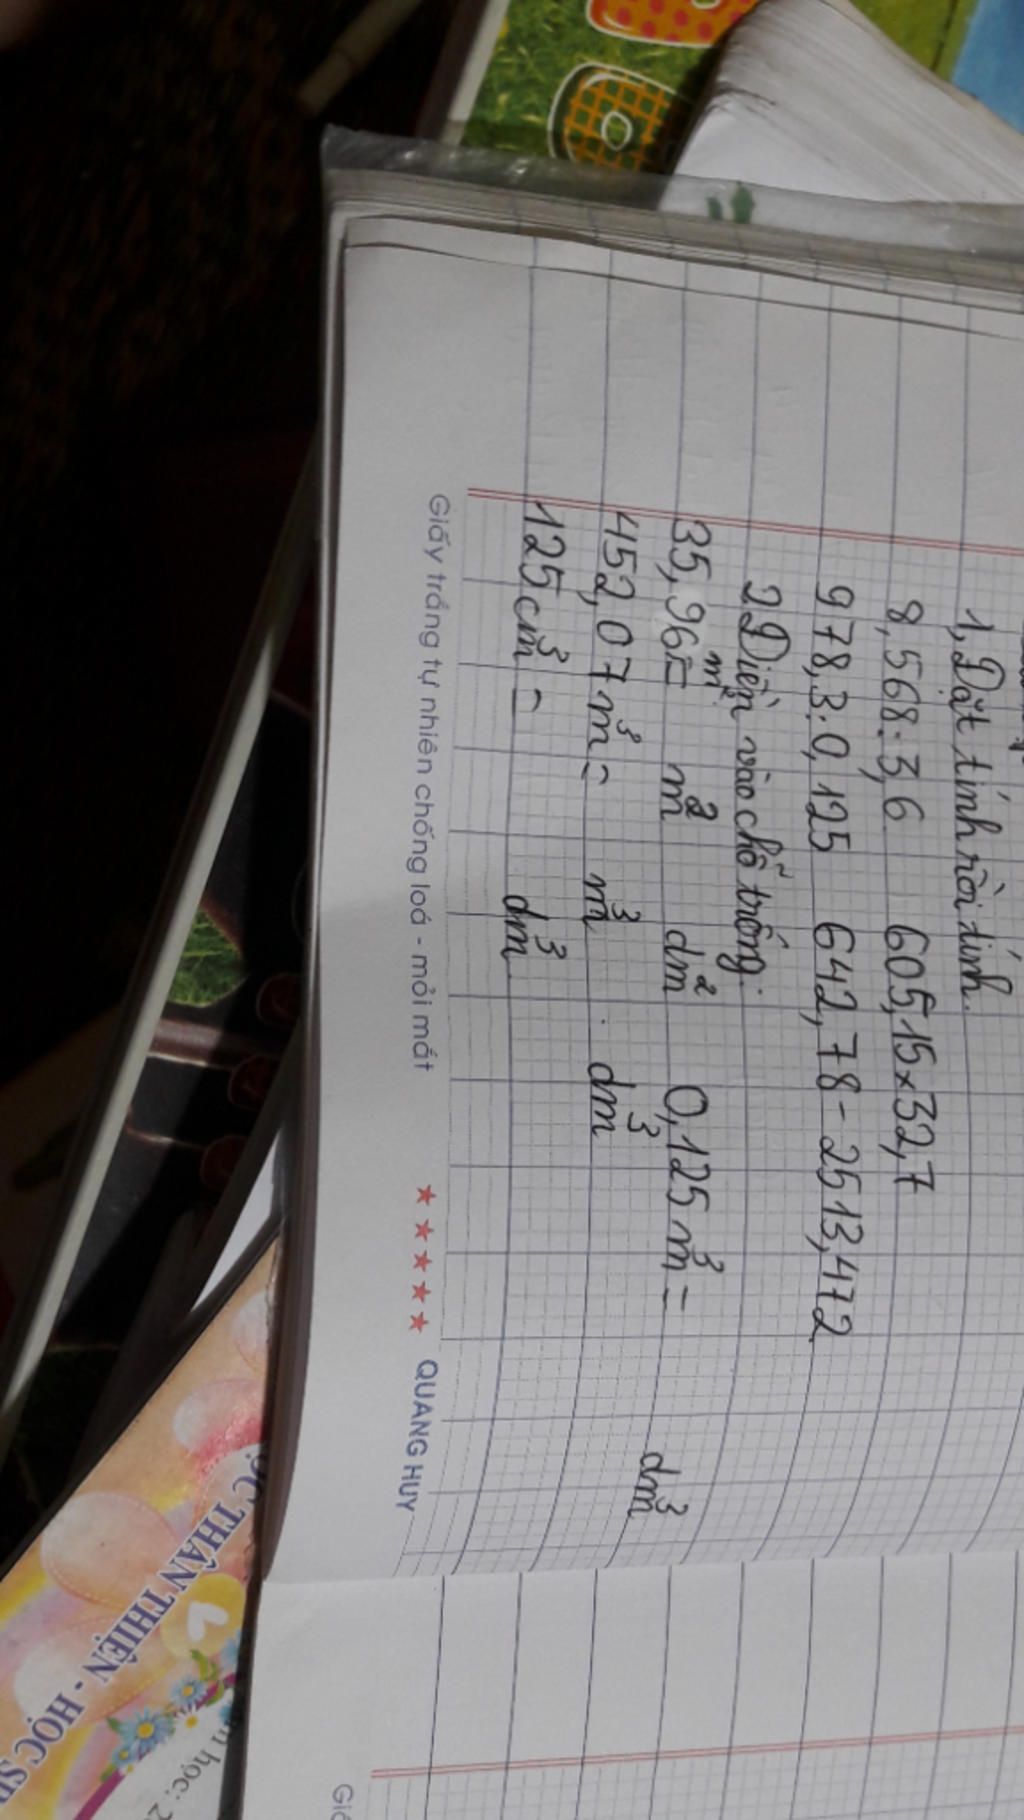 1, Đặt tính rồi tính.
8,568:3,6 605,15×32,7
978,3:0,125 642,78-2513,472
2 Điền vào chỗ trống:
35,96m²= m² dm² 0,125m³= dm³
452,07m³= m³ dm³
125cm³= dm³
Giấy trắng tự nhiên chống loá - mỏi mắt ★★★★★ QUANG HUY
ỌC THÂN THIỆN - HỌC
học: 2
Giấ